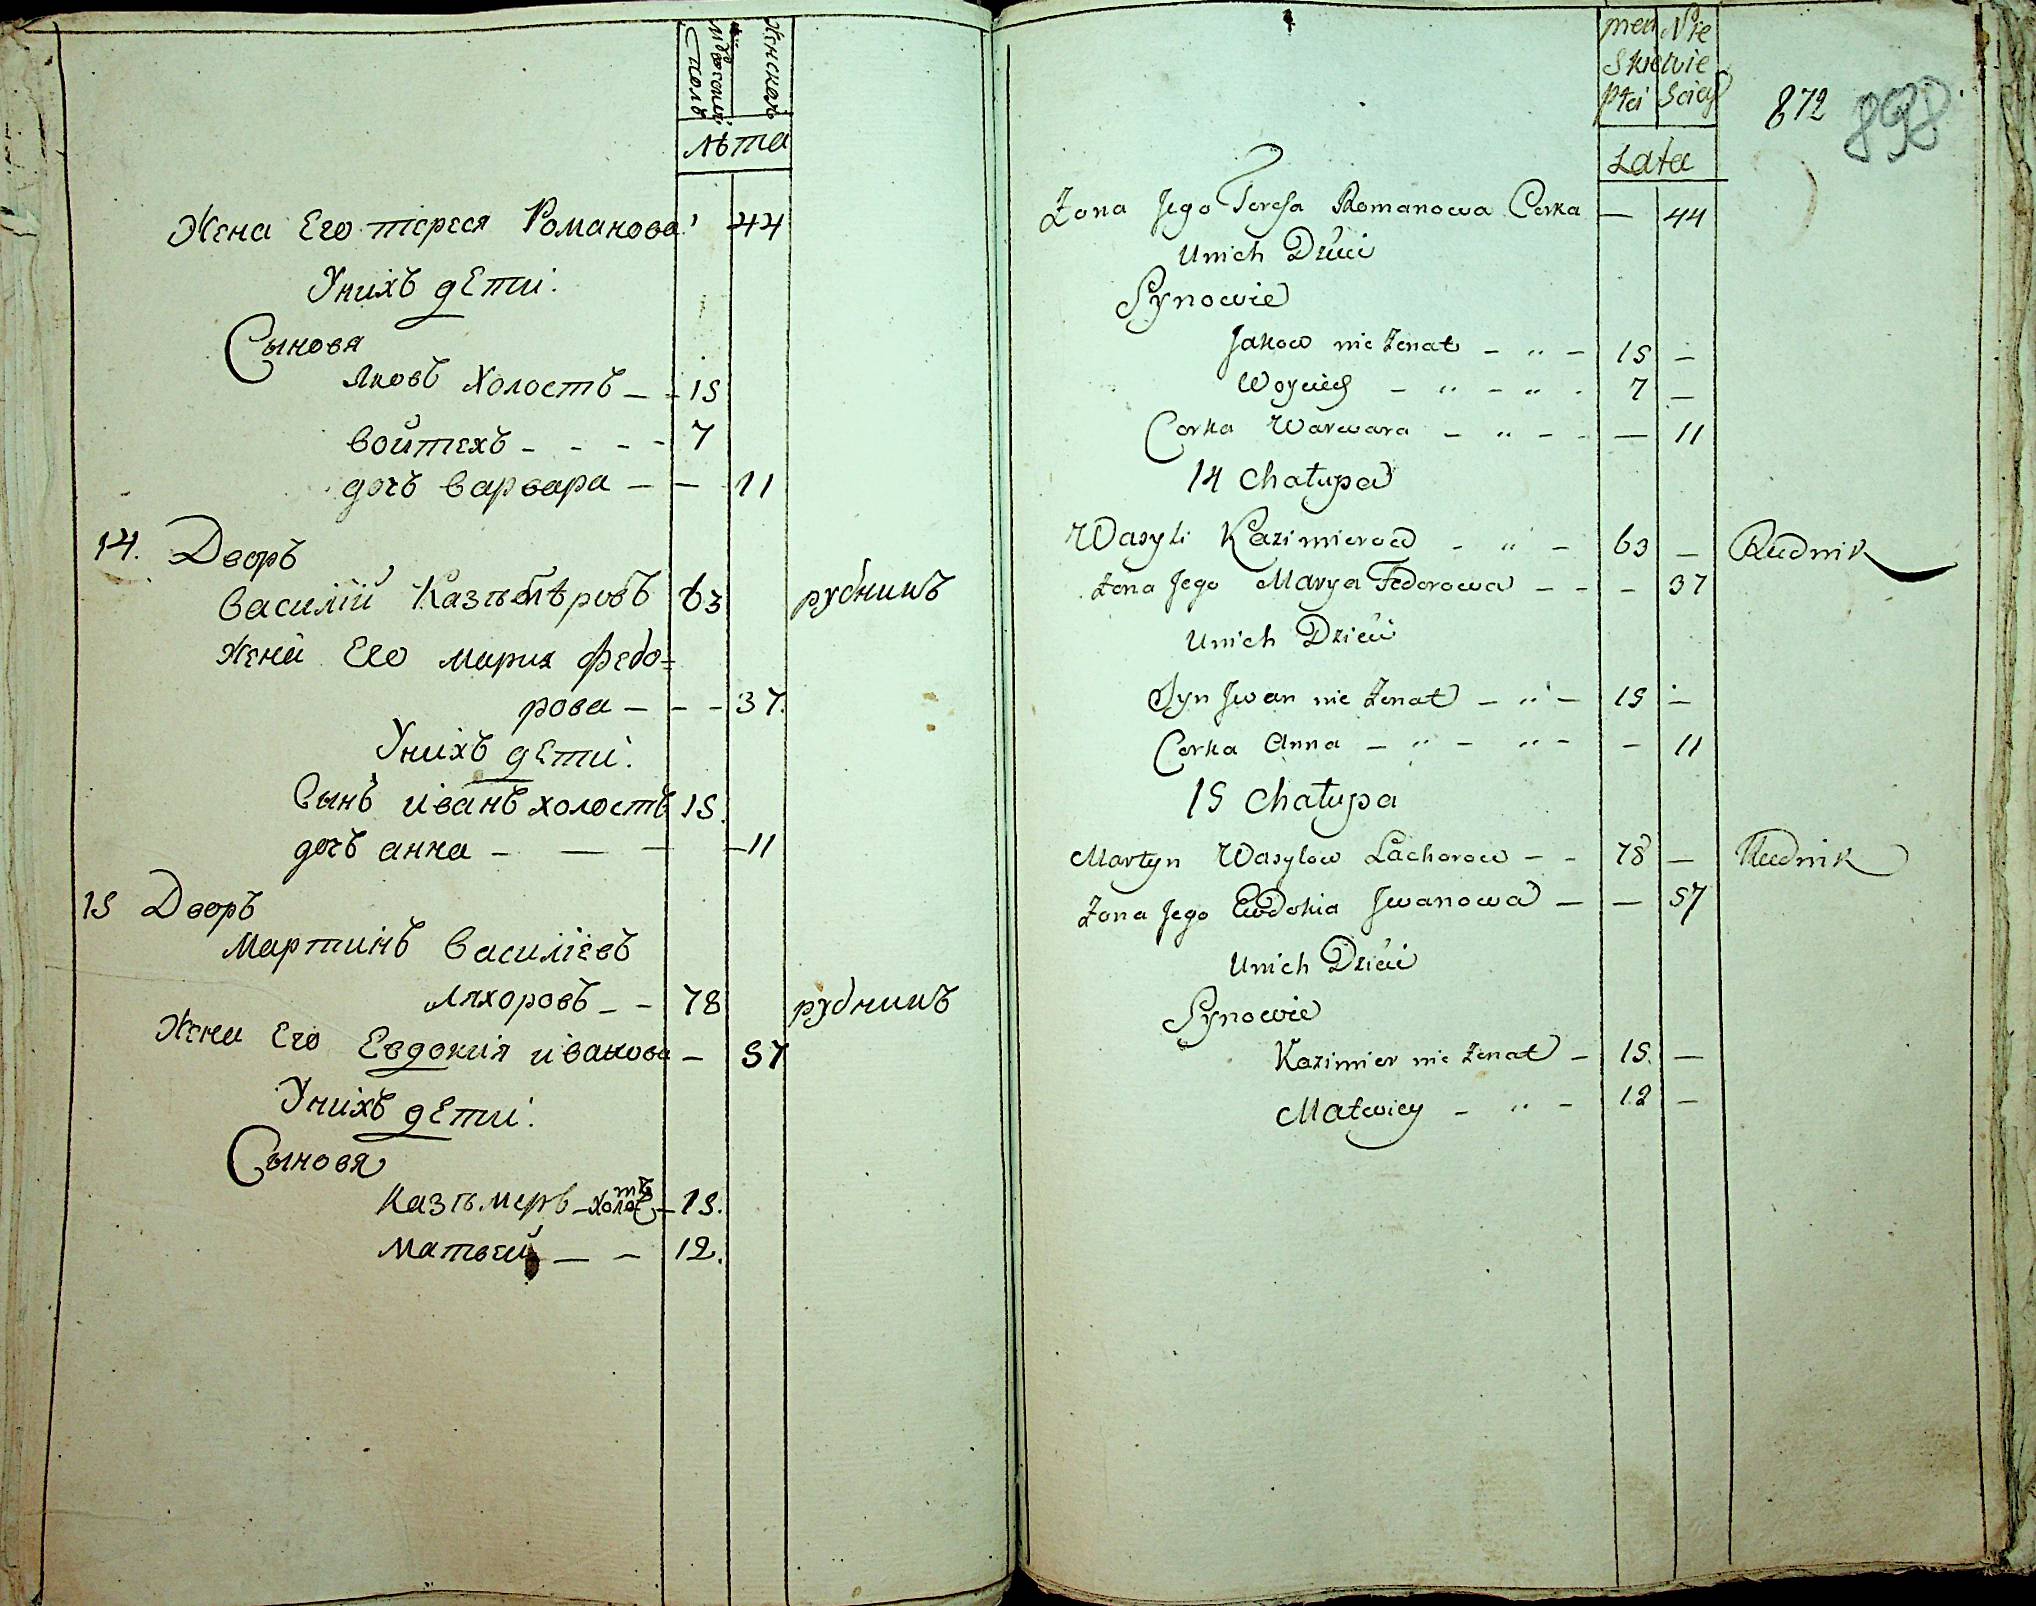 Мужской
Женской
Полъ
лѣта
Жена Его тереся Романова 44
Унихъ дЕти:
Сыновя
Яковъ Холостъ — - 15
войтехъ - - - - 7
дочъ варвара — — 11
14. Дворъ
Василій Казѣмѣровъ 63 рудникъ
Жена Его мария Федо=
рова — - - 37.
Унихъ дЕти:
Сынъ иванъ холостъ 15.
дочъ анна - — — - 11
15 Дворъ
Мартинъ Василіевъ
Ляхоровъ - - 78 рудникъ
Жена Его Евдокия иванова — 57
Унихъ дЕти:
Сыновя
Казѣмеръ - холостъ - 15.
Матвей — — 12.
męz Nie
Skiei wie
Płci Sciey
872 898
Lata
Żona Jego Teresa Romanowa Corka — 44
Unich Dzieci
Synowie
Jakow nie Żenat — „ — 15 —
Woyciech — „ — „ - 7 —
Corka Warwara — „ - - — 11
14 Chałupa
Wasyli Kazimierow - „ — 63 — Rudnik
Żona Jego Marya Fedorowa - - - 37
Unich Dzieci
Syn Jwan nie Żenat — „ — 15 —
Corka Anna — „ - „ - - 11
15 Chałupa
Martyn Wasylow Lachorow - - 78 — Rudnik
Żona Jego Ewdokia Jwanowa — — 57
Unich Dzieci
Synowie
Kazimier nie Żenat — 15. —
Matwiey — „ — 12 —